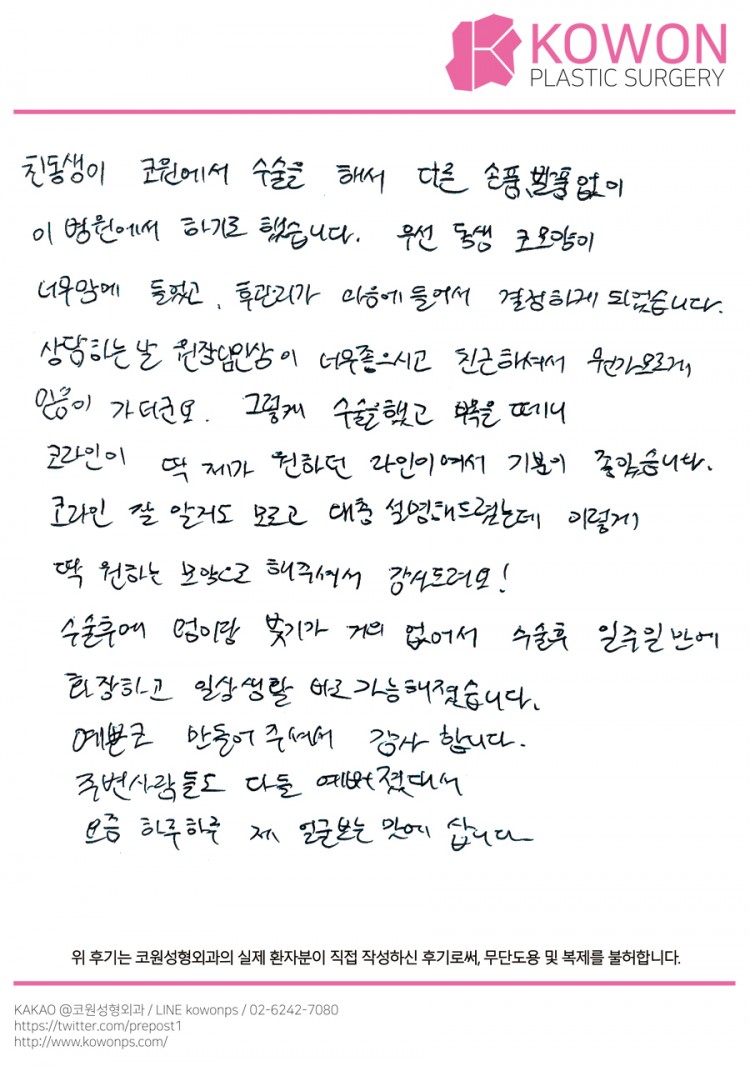 KOWON
PLASTIC SURGERY
친동생이 코원에서 수술을 해서 다른 손품, 발품 없이
이 병원에서 하기로 했습니다. 우선 동생 코모양이
너무맘에 들었고, 후관리가 마음에 들어서 결정하게 되었습니다.
상담하는날 원장님인상이 너무좋으시고 친근하셔서 뭔가모르게
믿음이 가더군요. 그렇게 수술을했고 부목을 떼니
코라인이 딱 제가 원하던 라인이여서 기분이 좋았습니다.
코라인 잘 알지도 모르고 대충 설명해드렸는데 이렇게
딱 원하는 모양으로 해주셔서 감사드려요!
수술후에 멍이랑 붓기가 거의 없어서 수술후 일주일만에
화장하고 일상생활 바로가능해졌습니다.
예쁜코 만들어주셔서 감사합니다.
주변사람들도 다들 예뻐졌대서
요즘 하루하루 제 얼굴보는 맛에 삽니다
위 후기는 코원성형외과의 실제 환자분이 직접 작성하신 후기로써, 무단도용 및 복제를 불허합니다.
KAKAO @코원성형외과 / LINE kowonps / 02-6242-7080
https://twitter.com/prepost1
http://www.kowonps.com/